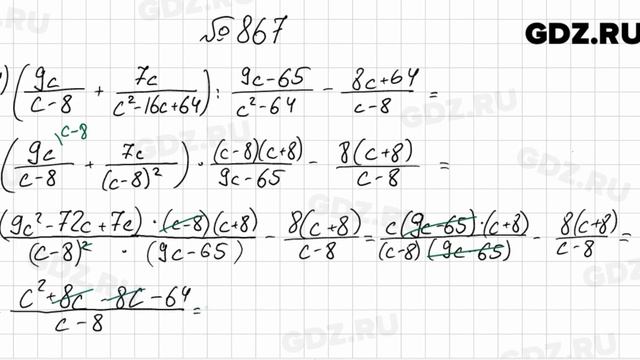 № 867
GDZ.RU
) (9c/(c-8) + 7c/(c²-16c+64)) : (9c-65)/(c²-64) - (8c+64)/(c-8) =
(9c/(c-8) \c-8 + 7c/(c-8)²) · (c-8)(c+8)/(9c-65) - 8(c+8)/(c-8) =
(9c²-72c+7c)·(c-8)(c+8)/((c-8)²·(9c-65)) - 8(c+8)/(c-8) = c(9c-65)·(c+8)/((c-8)(9c-65)) - 8(c+8)/(c-8) =
(c²+8c-8c-64)/(c-8) =
GDZ.RU